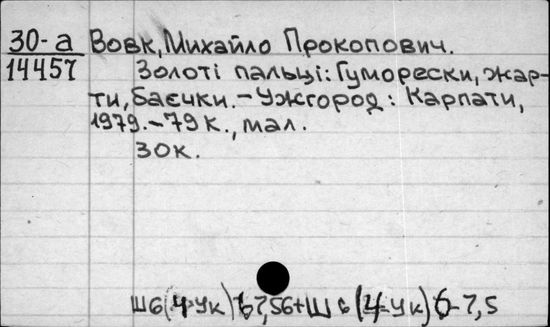 30-а Вовк, Михайло Прокопович.
14457 Золоті пальці: Гуморески, жар-
ти, баєчки. – Ужгород: Карпати,
1979. – 79 к., мал.
30к.
Ш6(4=Ук) 67,5б+Ш6(4=Ук)6-7,5